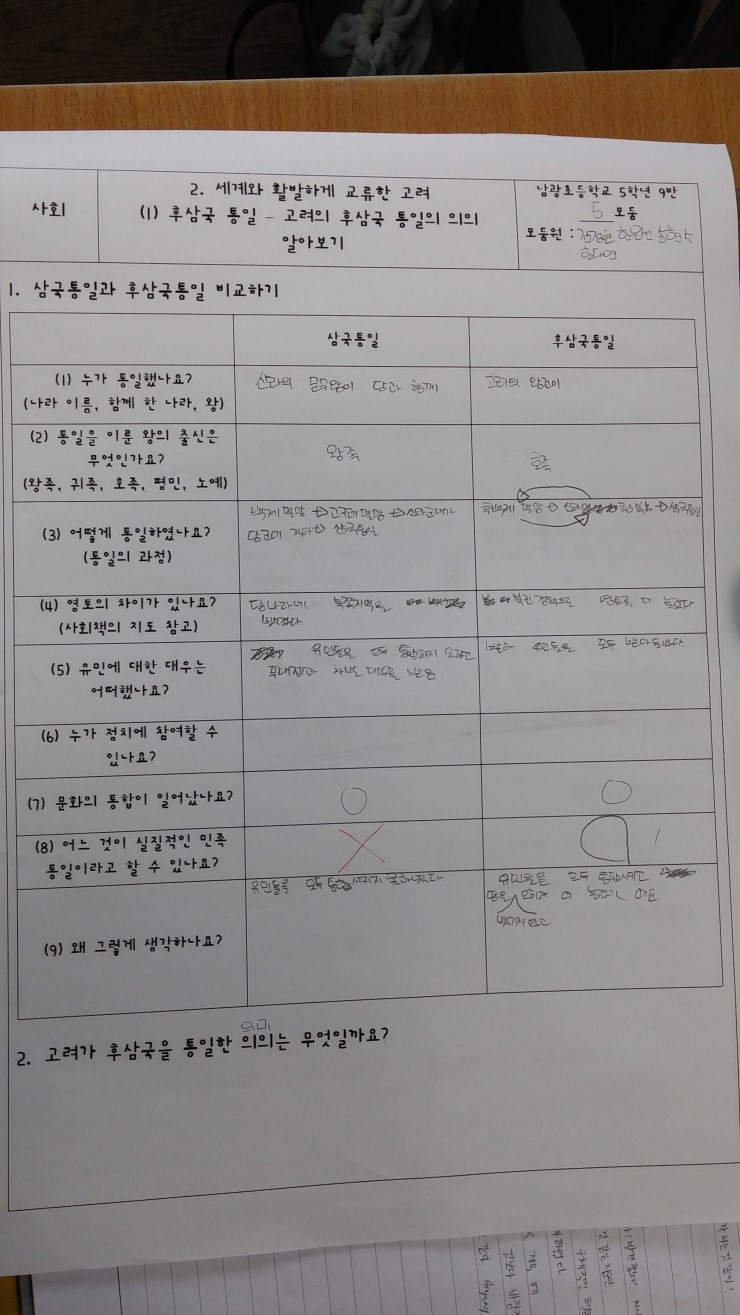 사회
2. 세계와 활발하게 교류한 고려
(1) 후삼국 통일 - 고려의 후삼국 통일의 의의
알아보기
남광초등학교 5학년 9반
5 모둠
모둠원 :
1. 삼국통일과 후삼국통일 비교하기
삼국통일
후삼국통일
(1) 누가 통일했나요?
(나라 이름, 함께 한 나라, 왕)
신라의 문무왕이 당과 함께
고려의 왕건이
(2) 통일을 이룬 왕의 출신은
무엇인가요?
(왕족, 귀족, 호족, 평민, 노예)
왕족
호족
(3) 어떻게 통일하였나요?
(통일의 과정)
백제 멸망 → 고구려 멸망 → 신라군대가
당군대 → 삼국통일
후백제 멸망 →
(4) 영토의 차이가 있나요?
(사회책의 지도 참고)
당나라에 북쪽지역을
빼겼다.
북진정책으로 영토를 더 늘렸다
(5) 유민에 대한 대우는
어떠했나요?
유민들을 모두 통합하지 못하고
차별 대우를 받음
발해 유민들을 모두 받아들였다.
(6) 누가 정치에 참여할 수
있나요?
(7) 문화의 통합이 일어났나요?
○
○
(8) 어느 것이 실질적인 민족
통일이라고 할 수 있나요?
X
(9) 왜 그렇게 생각하나요?
유민들을 모두 통합시키지 못하였다
유민들을 모두 통합시키고
땅을 오히려 더 늘렸기 때문
빼기지 않고
의미
2. 고려가 후삼국을 통일한 의의는 무엇일까요?